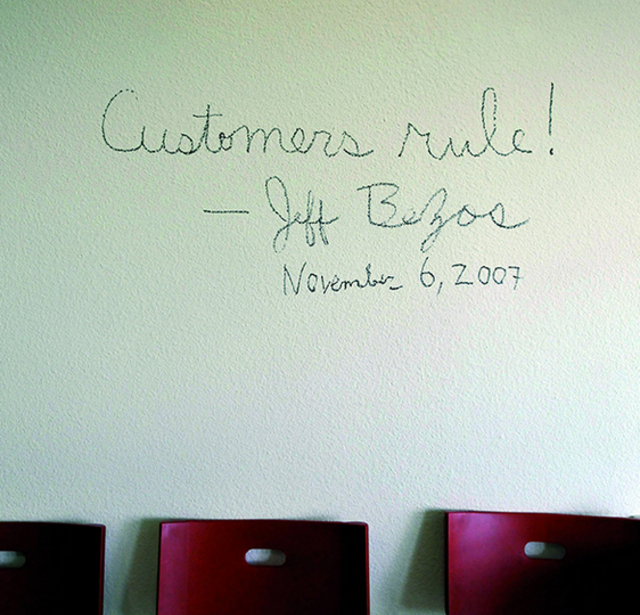 Customers rule!
— Jeff Bezos
November 6, 2007